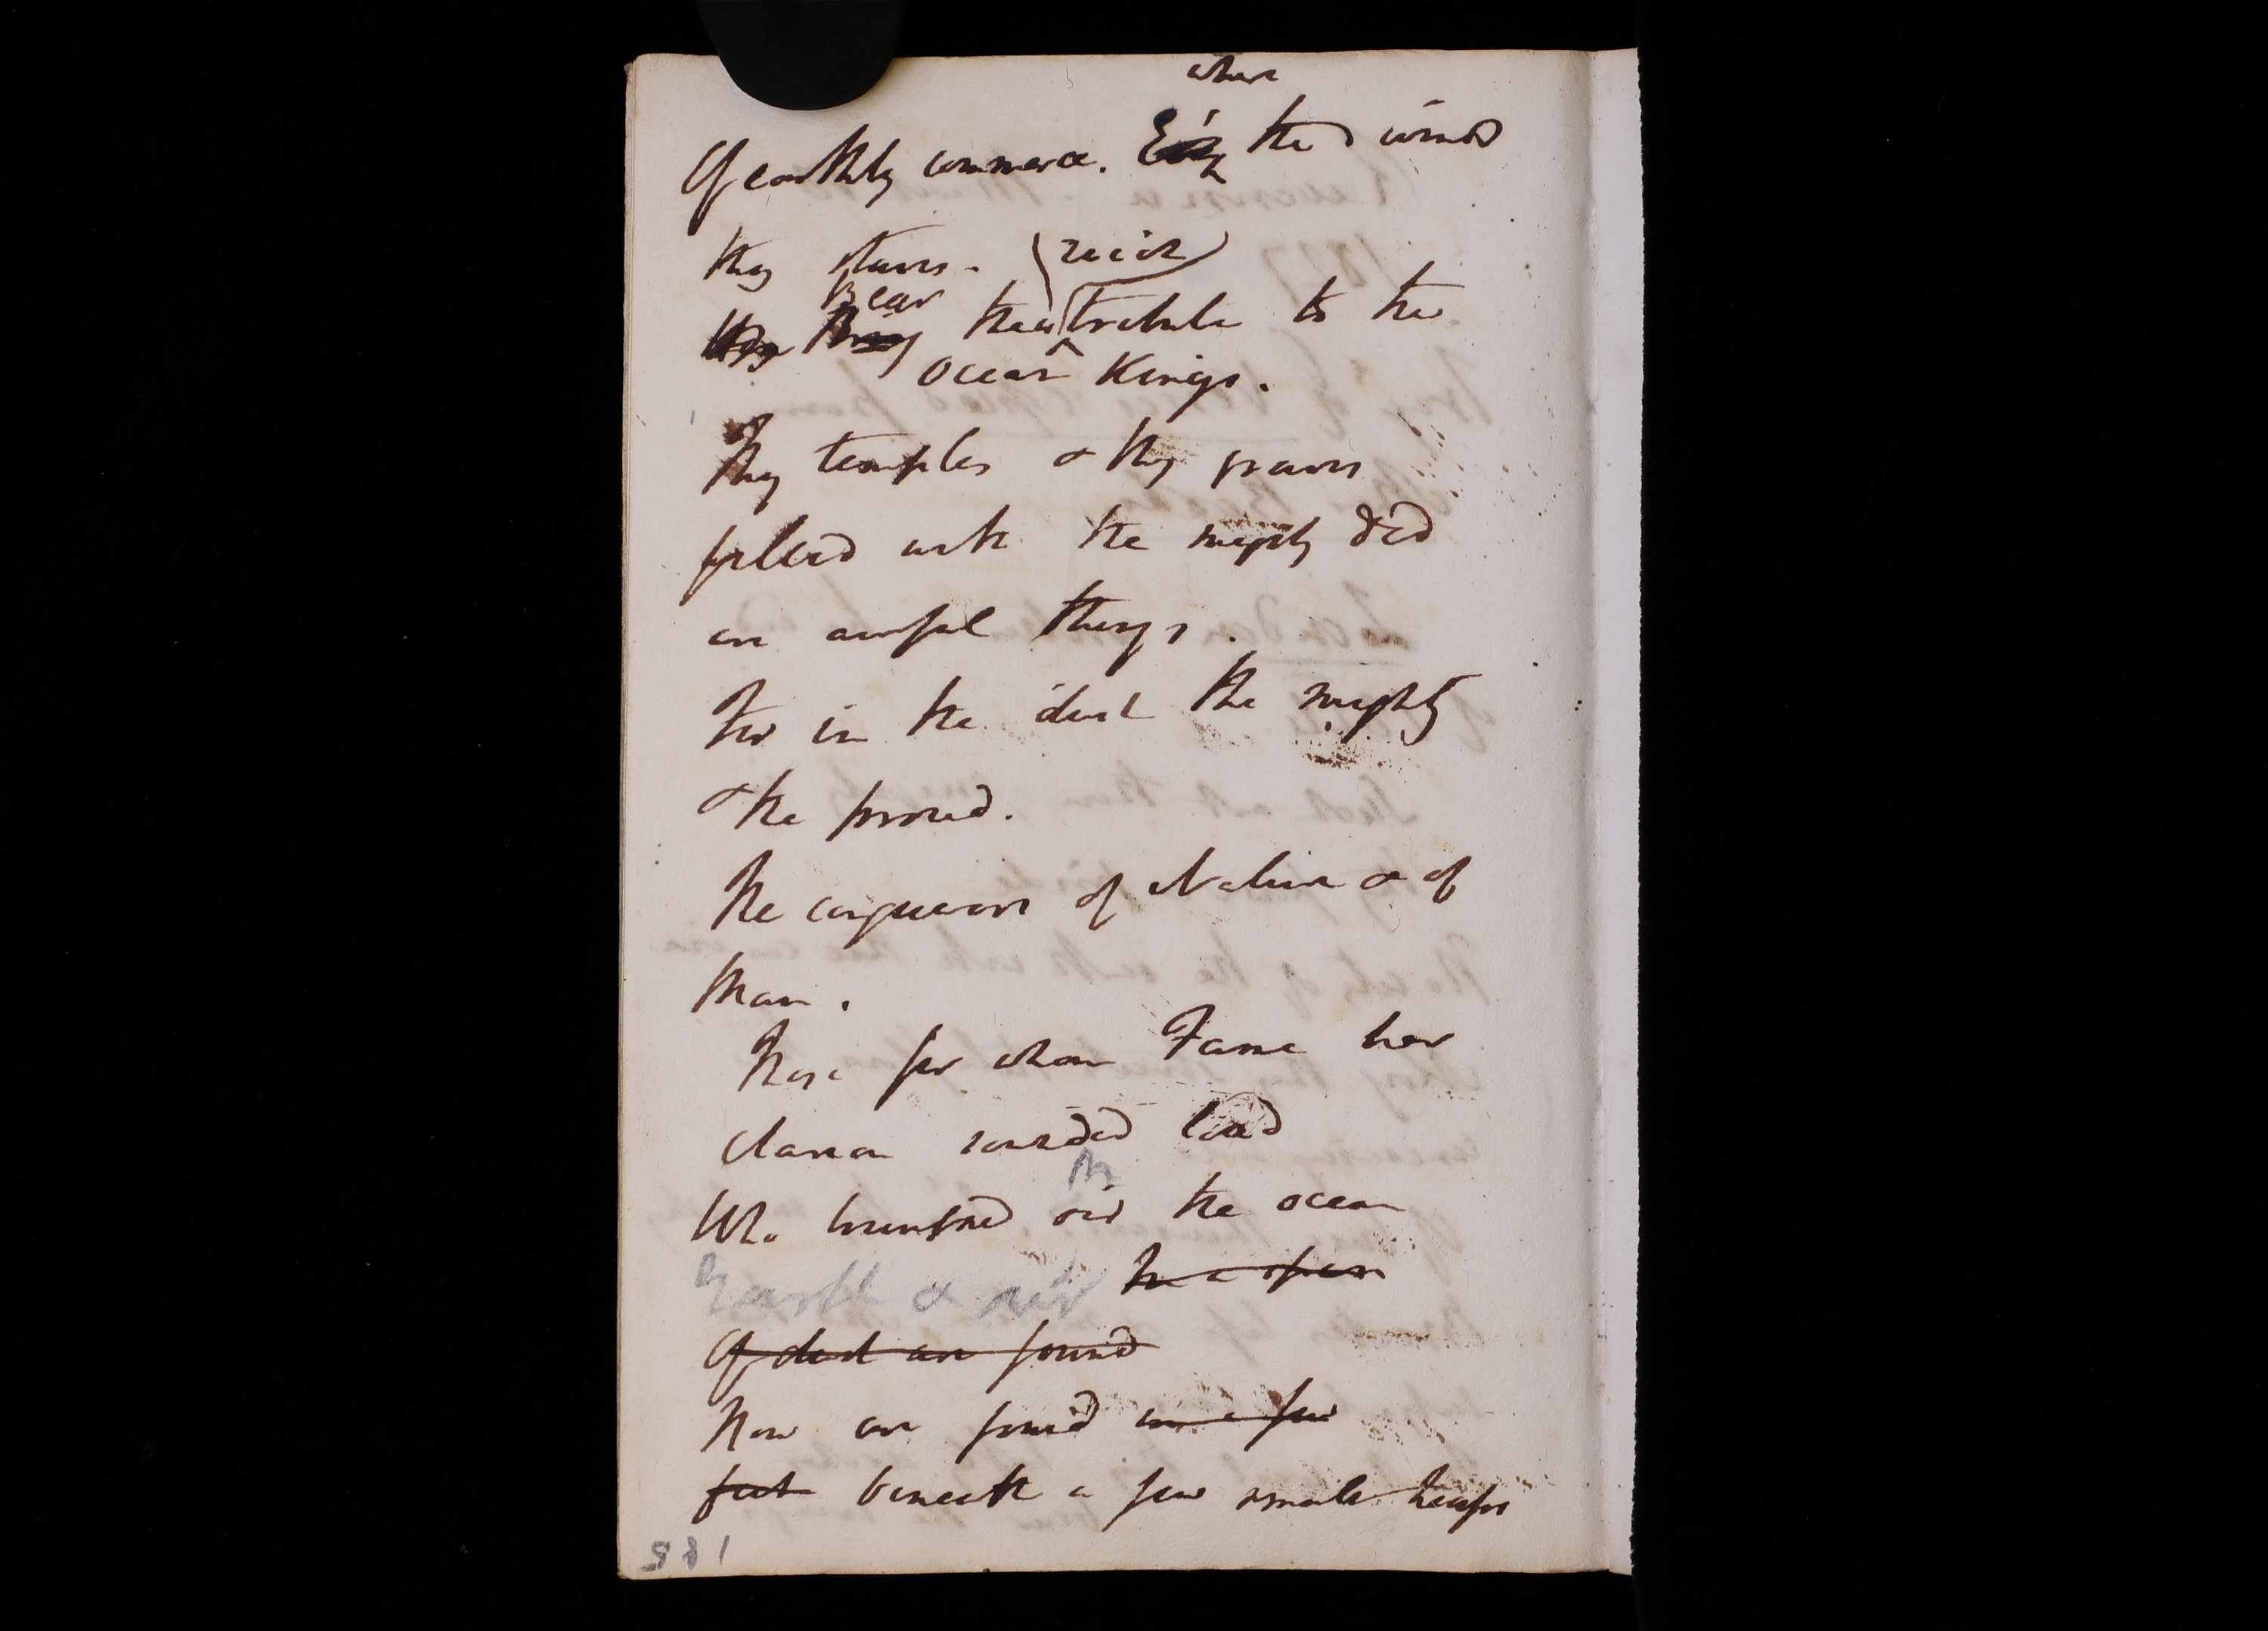 where
Of earthly commerce. E'en the winds
thy slaves. (rich)
thy Bring Bear their tribute to the
Ocean Kings.
Thy temples & thy graves
filled with the mighty dead
are awful things.
For in the dust the mighty
& the proud.
The conquerors of Nature & of
Man.
Those for whom Fame her
clarion sounded loud
Who triumphed o'er the ocean
Earth & air In a span
Of dust are found
Now are found in a few
feet beneath a few small heaps
181